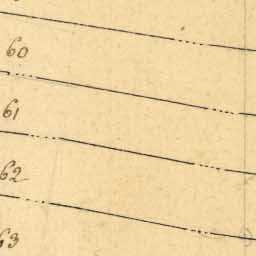 60
61
62
63